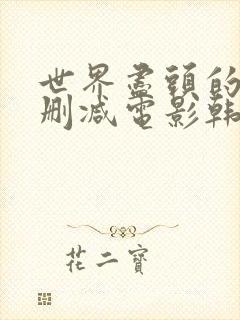 世界盡頭的
刪減電影韩
花二寶